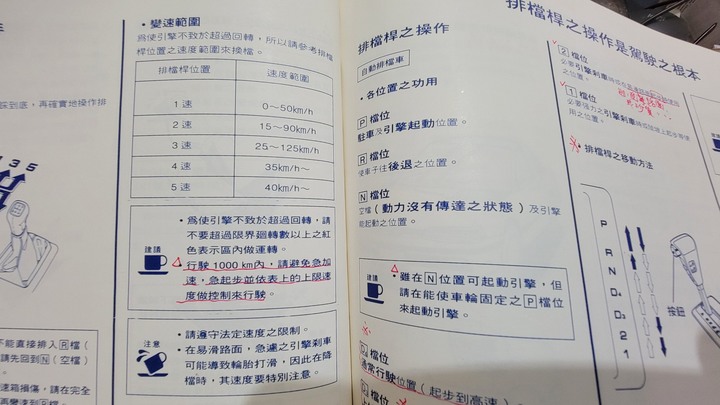 踩到底，再確實地操作排
3 5
不能直接排入R檔（
請先回到N（空檔）
速箱損傷，請在完全
再變速到R檔。
• 變速範圍
為使引擎不致於超過回轉，所以請參考排檔
桿位置之速度範圍來換檔。
排檔桿位置 速度範圍
1 速 0～50km/h
2 速 15～90km/h
3 速 25～125km/h
4 速 35km/h～
5 速 40km/h～
建議
• 為使引擎不致於超過回轉，請
不要超過限界迴轉數以上之紅
色表示區內做運轉。
行駛1000 km內，請避免急加
速，急起步並依表上的上限速
度做控制來行駛。
注意
• 請遵守法定速度之限制。
• 在易滑路面，急遽之引擎剎車
可能導致輪胎打滑，因此在降
檔時，其速度要特別注意。
排檔桿之操作
自動排檔車
• 各位置之功用
P 檔位
駐車及引擎起動位置。
R 檔位
使車子往後退之位置。
N 檔位
空檔（動力沒有傳達之狀態）及引擎
能起動之位置。
建議
• 雖在 N 位置可起動引擎，但
請在能使車輪固定之 P 檔位
來起動引擎。
D₄ 檔位
通常行駛位置（起步到高速）
排檔桿之操作是駕駛之根本
2 檔位
必要引擎剎車時
之位置。
1 檔位
必要強力之引擎剎車時
用之位置。
• 排檔桿之移動方法
P
R
N
D₄
D₃
2
1
按鈕